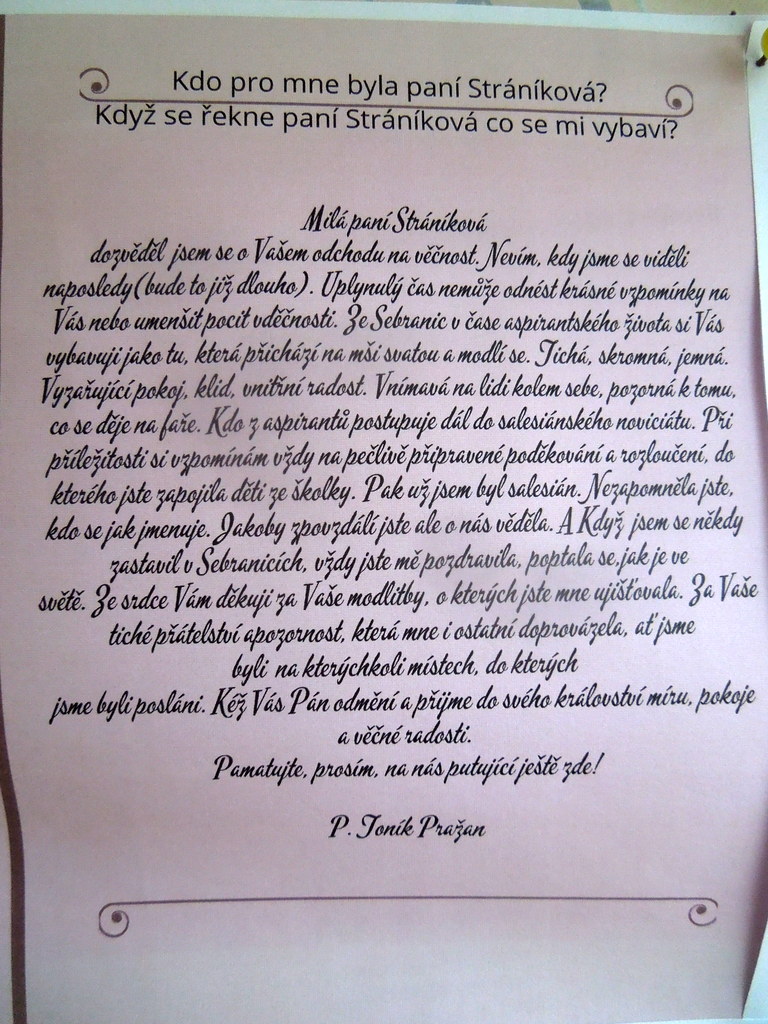 Kdo pro mne byla paní Stráníková?
Když se řekne paní Stráníková co se mi vybaví?
Milá paní Stráníková
dozvěděl jsem se o Vašem odchodu na věčnost. Nevím, kdy jsme se viděli
naposledy(bude to již dlouho). Uplynulý čas nemůže odnést krásné vzpomínky na
Vás nebo umenšit pocit vděčnosti. Ze Sebranic v čase aspirantského života si Vás
vybavuji jako tu, která přichází na mši svatou a modlí se. Tichá, skromná, jemná.
Vyzařující pokoj, klid, vnitřní radost. Vnímavá na lidi kolem sebe, pozorná k tomu,
co se děje na faře. Kdo z aspirantů postupuje dál do salesiánského noviciátu. Při
příležitosti si vzpomínám vždy na pečlivě připravené poděkování a rozloučení, do
kterého jste zapojila děti ze školky. Pak už jsem byl salesián. Nezapomněla jste,
kdo se jak jmenuje. Jakoby zpovzdálí jste ale o nás věděla. A Když jsem se někdy
zastavil v Sebranicích, vždy jste mě pozdravila, poptala se,jak je ve
světě. Ze srdce Vám děkuji za Vaše modlitby, o kterých jste mne ujišťovala. Za Vaše
tiché přátelství apozornost, která mne i ostatní doprovázela, ať jsme
byli na kterýchkoli místech, do kterých
jsme byli posláni. Kéž Vás Pán odmění a přijme do svého království míru, pokoje
a věčné radosti.
Pamatujte, prosím, na nás putující ještě zde!
P. Toník Pražan